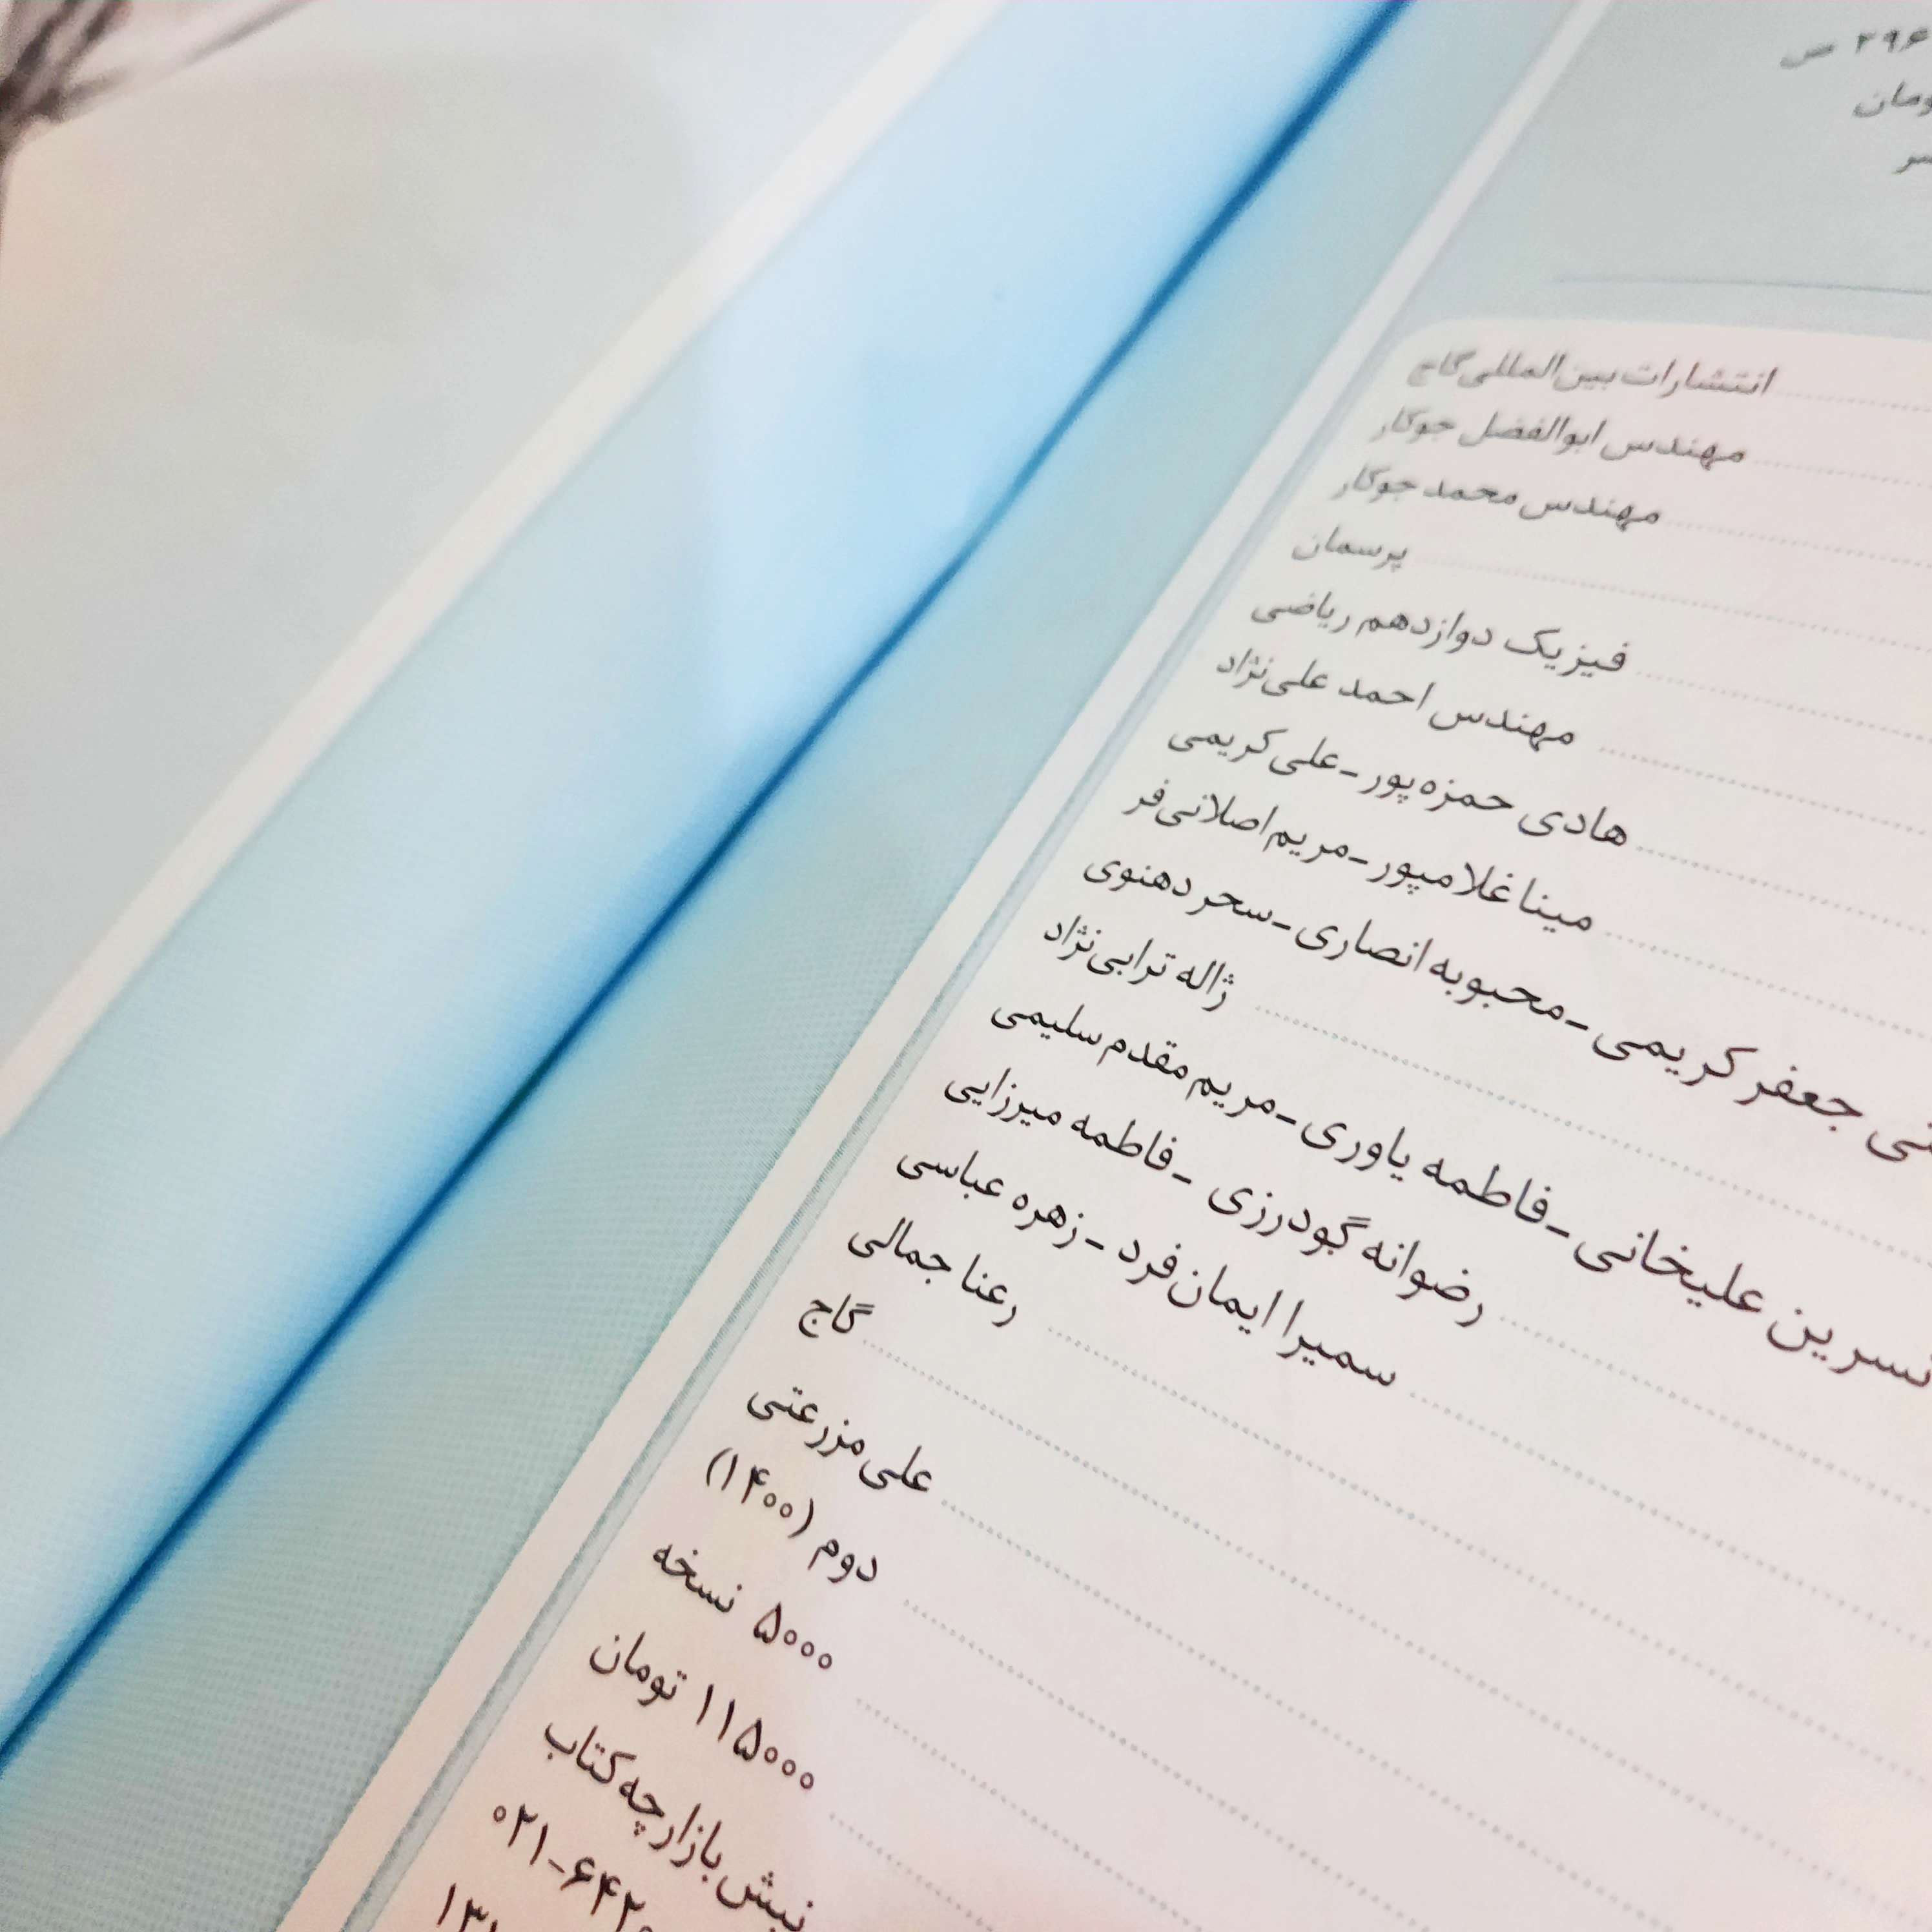 ۲۹۶ ص
انتشارات بین‌المللی گاج
مهندس ابوالفضل جوکار
مهندس محمد جوکار
پرسمان
فیزیک دوازدهم ریاضی
مهندس احمد علی‌نژاد
هادی حمزه پور - علی کریمی
مینا غلامپور - مریم اصلانی‌فر
جعفر کریمی - محبوبه انصاری - سحر دهنوی
ژاله ترابی‌نژاد
نسرین علیخانی - فاطمه یاوری - مریم مقدم سلیمی
رضوانه گودرزی - فاطمه میرزایی
سمیرا ایمان‌فرد - زهره عباسی
رعنا جمالی
گاج
علی مزرعتی
دوم (۱۴۰۰)
۵۰۰۰ نسخه
۱۱۵۰۰۰ تومان
نبش بازارچه کتاب
۰۲۱-۶۴۲۰